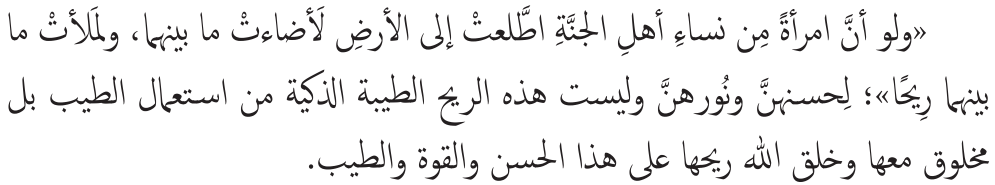 «ولو أنَّ امرأةً مِن نساءِ أهلِ الجنَّةِ اطَّلعتْ إلى الأرضِ لَأضاءتْ ما بينهما، ولمَلأتْ ما
بينهما رِيحًا»؛ لِحسنهنَّ ونُورهنَّ وليست هذه الريح الطيبة الذكية من استعمال الطيب بل
مخلوق معها وخلق الله ريحها على هذا الحسن والقوة والطيب.